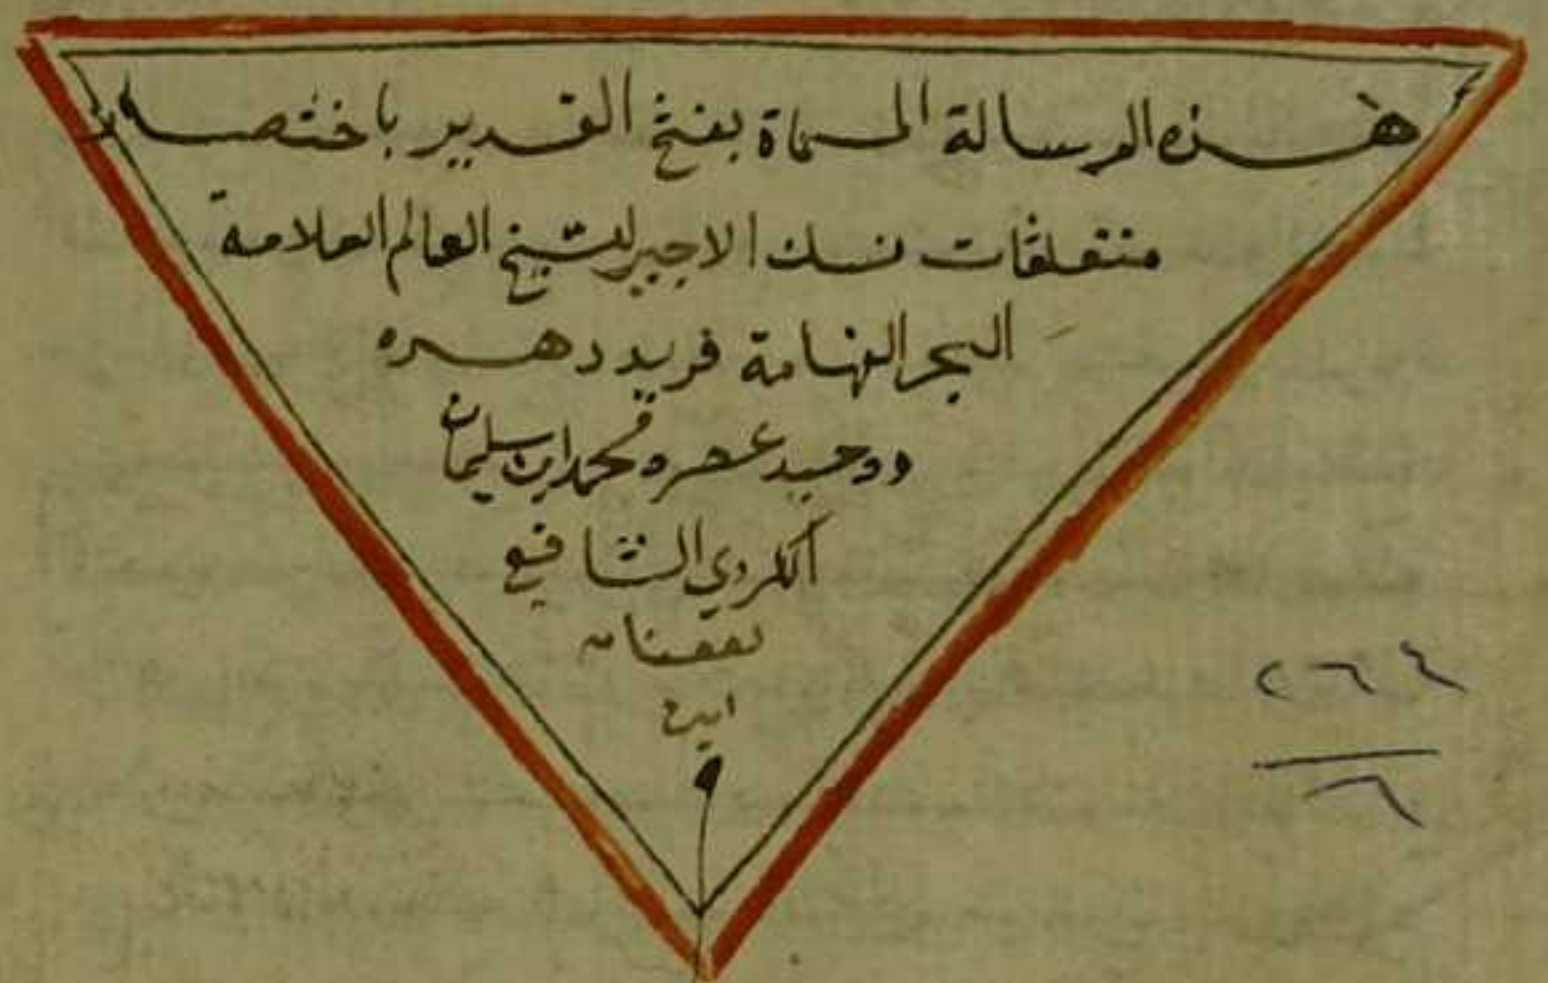 هذه الرسالة المسماة بفتح القدير باختصار
متعلقات نسك الاجير للشيخ العالم العلامة
البحر الفهامة فريد دهره
ووحيد عصره محمد ابن سليمان
الكردي الشافعي
نفعنا به
امين
٢٦٤
٦